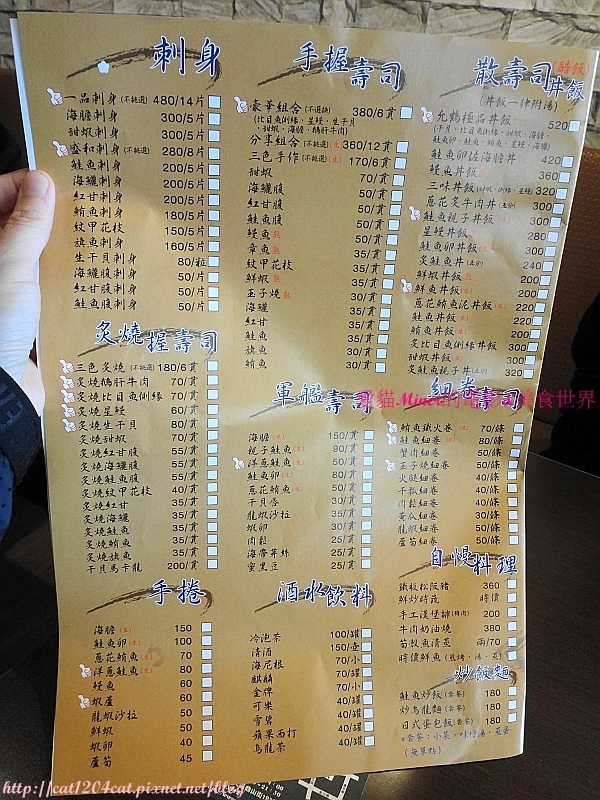 刺身
一品刺身(不挑選) 480/14片
海膽刺身 300/5片
甜蝦刺身 300/5片
盛和刺身(不挑選) 280/8片
鮭魚刺身 200/5片
海鱺刺身 200/5片
紅甘刺身 200/5片
鮪魚刺身 180/5片
紋甲花枝 150/5片
旗魚刺身 160/5片
生干貝刺身 80/粒
海鱺腹刺身 50/片
紅甘腹刺身 50/片
鮭魚腹刺身 50/片
炙燒握壽司
三色炙燒(不挑選) 180/6貫
炙燒鵝肝牛肉 70/貫
炙燒比目魚側緣 70/貫
炙燒星鰻 60/貫
炙燒生干貝 80/貫
炙燒甜蝦 70/貫
炙燒紅甘腹 55/貫
炙燒海鱺腹 55/貫
炙燒鮭魚腹 55/貫
炙燒紋甲花枝 40/貫
炙燒紅甘 35/貫
炙燒海鱺 35/貫
炙燒鮭魚 35/貫
炙燒鮪魚 35/貫
炙燒旗魚 35/貫
干貝馬卡龍 200/貫
手捲
海膽(生) 150
鮭魚卵(生) 100
蔥花鮪魚(生) 70
洋蔥鮭魚(生) 80
鰻魚 60
蝦蘆 60
龍蝦沙拉 50
鮮蝦 50
蝦卵 40
蘆筍 45
手握壽司
豪華組合(不選擇) 380/6貫
(比目魚側緣、星鰻、生干貝
、甜蝦、海膽、鵝肝牛肉)
分享組合(不挑選)(生) 360/12貫
三色手作(不挑選) 170/6貫
甜蝦 70/貫
海鱺腹 50/貫
紅甘腹 50/貫
鮭魚腹 50/貫
鰻魚 熟 50/貫
章魚 熟 35/貫
紋甲花枝 35/貫
鮮蝦 熟 35/貫
玉子燒 熟 30/貫
海鱺 35/貫
紅甘 35/貫
鮭魚 35/貫
旗魚 35/貫
鮪魚 35/貫
軍艦壽司
海膽(生) 150/貫
親子鮭魚(生) 90/貫
洋蔥鮭魚(生) 50/貫
鮭魚卵(生) 80/貫
蔥花鮪魚(生) 50/貫
干貝唇 30/貫
龍蝦沙拉 30/貫
蝦卵 30/貫
肉鬆 25/貫
海帶芽絲 25/貫
蜜黑豆 25/貫
酒水飲料
冷泡茶 100/罐
清酒 150/壺
海尼根 70/小
麒麟 70/小
金牌 70/小
可樂 40/罐
雪碧 40/罐
蘋果西打 40/罐
烏龍茶 40/罐
散壽司(醋飯)
丼飯
(丼飯一律附湯)
允鶴極品丼飯 520
鮭魚卵佐海膽丼(生) 420
鰻魚丼飯 360
三味丼飯 320
蔥花炙牛肉丼(五分) 300
鮭魚親子丼飯(生) 300
星鰻丼飯 280
鮭魚卵丼飯(生) 300
炙鮭魚丼(五分) 240
鮮蝦丼飯 200
鮮魚丼飯(生) 200
蔥花鮪魚泥丼飯(生) 220
鮭魚丼飯(生) 220
鮪魚丼飯(生) 200
炙比目魚側緣丼飯 300
甜蝦丼飯(生) 300
炙鮭魚親子丼(五分) 320
細卷壽司
鮪魚鐵火卷(生) 70/條
鮭魚細卷(生) 80/條
蟹肉細卷 50/條
玉子燒細卷 50/條
火腿細卷 40/條
干瓢細卷 40/條
肉鬆細卷 40/條
黃瓜細卷 50/條
龍蝦細卷 50/條
蘆筍細卷 50/條
自慢料理
鐵板松阪豬 360
鮮炒時蔬 時價
手工漢堡排(豬肉) 200
牛肉奶油燒 380
筍殼魚清蒸 兩/70
時價鮮魚(煎烤、湯、蒸)
炒飯麵
鮭魚炒飯(套餐) 180
炒烏龍麵(套餐) 180
日式蛋包飯(套餐) 180
※套餐:小菜、味噌湯、茶壺
(無單點)
http://cat1204cat.pixnet.net/blog